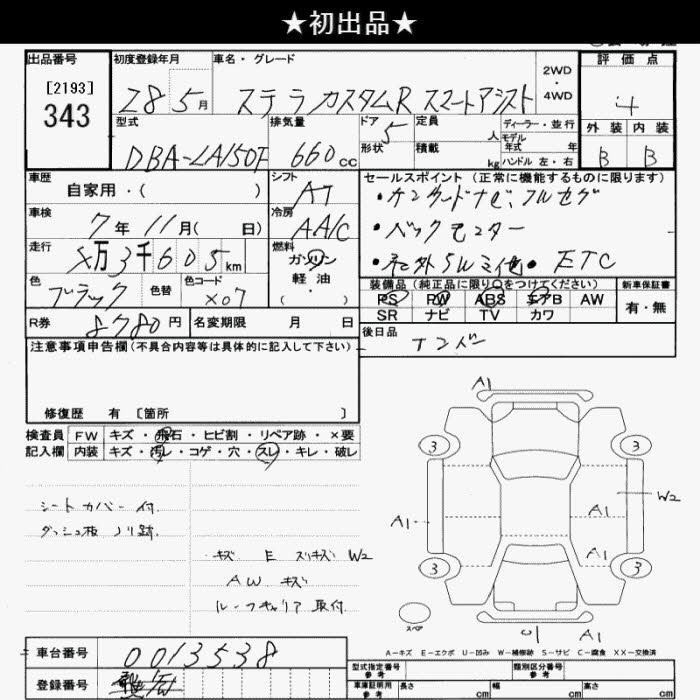 ★初出品★
出品番号
[2193]
343
初度登録年月
28 5月
車名・グレード
ステラ カスタムR スマートアシスト
2WD
・
4WD
評価点
4
外装 内装
B B
型式
DBA-LA150F
排気量
660cc
ドア
5
形状
定員
人
積載
kg
ディーラー・並行
モデル
年式 年
ハンドル 左・右
車歴
自家用・( )
シフト
AT
車検
7年11月( 日)
冷房
AA/C
走行
万3千605km
燃料
ガソリン
軽油
・( )
色
ブラック
色替
色コード
X07
R券
8780円
名変期限 月 日
セールスポイント(正常に機能するものに限ります)
・ケンウッドナビ、フルセグ
・バックモニター
・社外SW ・ETC
装備品(純正品に限り○をつけてください)
PS PW ABS エアB AW
SR ナビ TV カワ
新車保証書
有・無
後日品
ナンバー
注意事項申告欄(不具合内容等は具体的に記入して下さい)
修復歴 有 〔箇所 〕
検査員
記入欄
FW キズ・飛石・ヒビ割・リペア跡・×要
内装 キズ・汚レ・コゲ・穴・スレ・キレ・破レ
シートカバー付
ダッシュ板 ノリ跡
キズ E スリキズ W2
AW キズ
ルーフキャリア取付
A1
3 3
W2
A1 A1
A1
3 3
スペア
U1 A1
A-キズ E-エクボ U-凹み W-補修跡 S-サビ C-腐食 XX-交換済
車台番号
0013538
登録番号
型式指定番号
参考
類別区分番号
参考
車庫証明用
参考
長さ cm
幅 cm
高さ cm